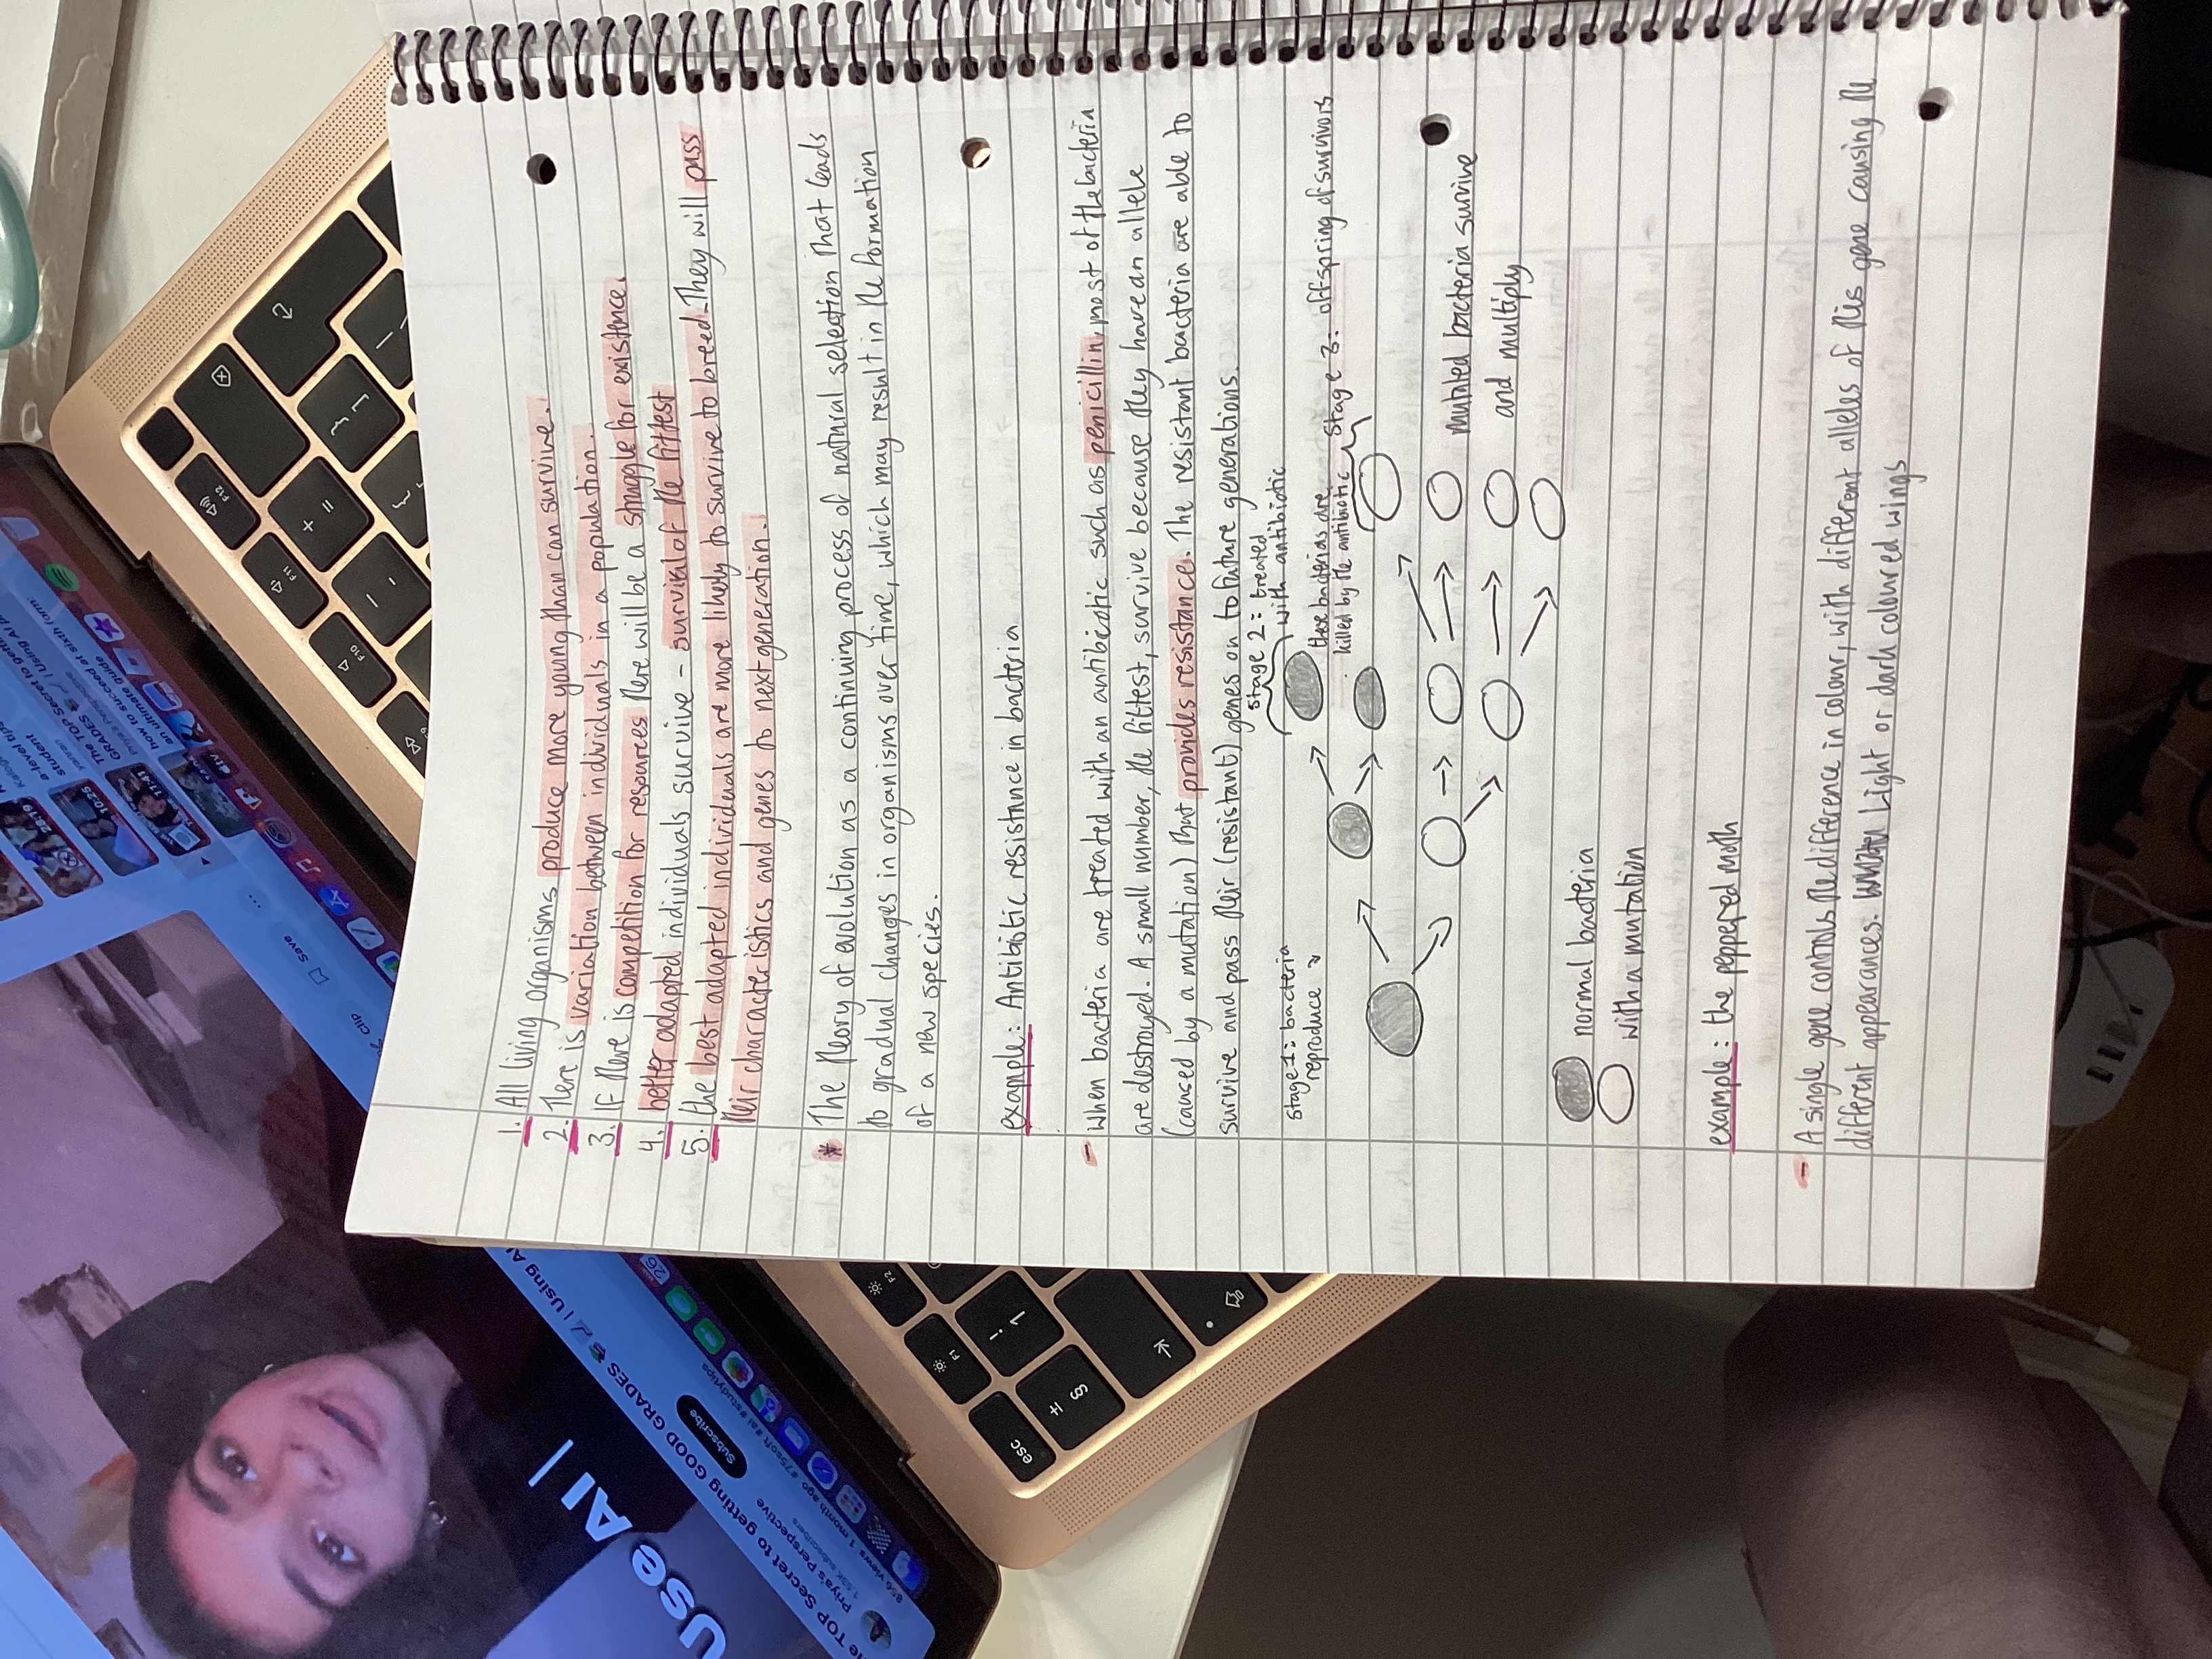 1. All living organisms produce more young than can survive.
2. There is variation between individuals in a population.
3. If there is competition for resources there will be a struggle for existence.
4. better adapted individuals survive - survival of the fittest
5. the best adapted individuals are more likely to survive to breed. They will pass
their characteristics and genes to next generation.
* The theory of evolution as a continuing process of natural selection that leads
to gradual changes in organisms over time, which may result in the formation
of a new species.
example: Antibiotic resistance in bacteria
- when bacteria are treated with an antibiotic such as penicillin, most of the bacteria
are destroyed. A small number, the fittest, survive because they have an allele
(caused by a mutation) that provides resistance. The resistant bacteria are able to
survive and pass their (resistant) genes on to future generations.
stage 1: bacteria
reproduce
stage 2: treated
with antibiotic
these bacterias are
killed by the antibiotic
stage 3: offspring of survivors
mutated bacteria survive
and multiply
normal bacteria
with a mutation
example: the peppered moth
- A single gene controls the difference in colour, with different alleles of this gene causing the
different appearances. Light or dark coloured wings
USE AI |
e TOP Secret to getting GOOD GRADES | Using AI
Priya's Perspective
Subscribe
856 views 1 month ago #75soft #ai #studytips
Clip
Save
The TOP Secret to getti
GRADES | Using AI p
Priya's Perspective
how to succeed at sixth form:
an ultimate guide
a level tips
student
10:25
11:41
26:19
esc
F1
F2
F10
F11
F12
§
±
!
1
+
=
_
-
}
]
{
[